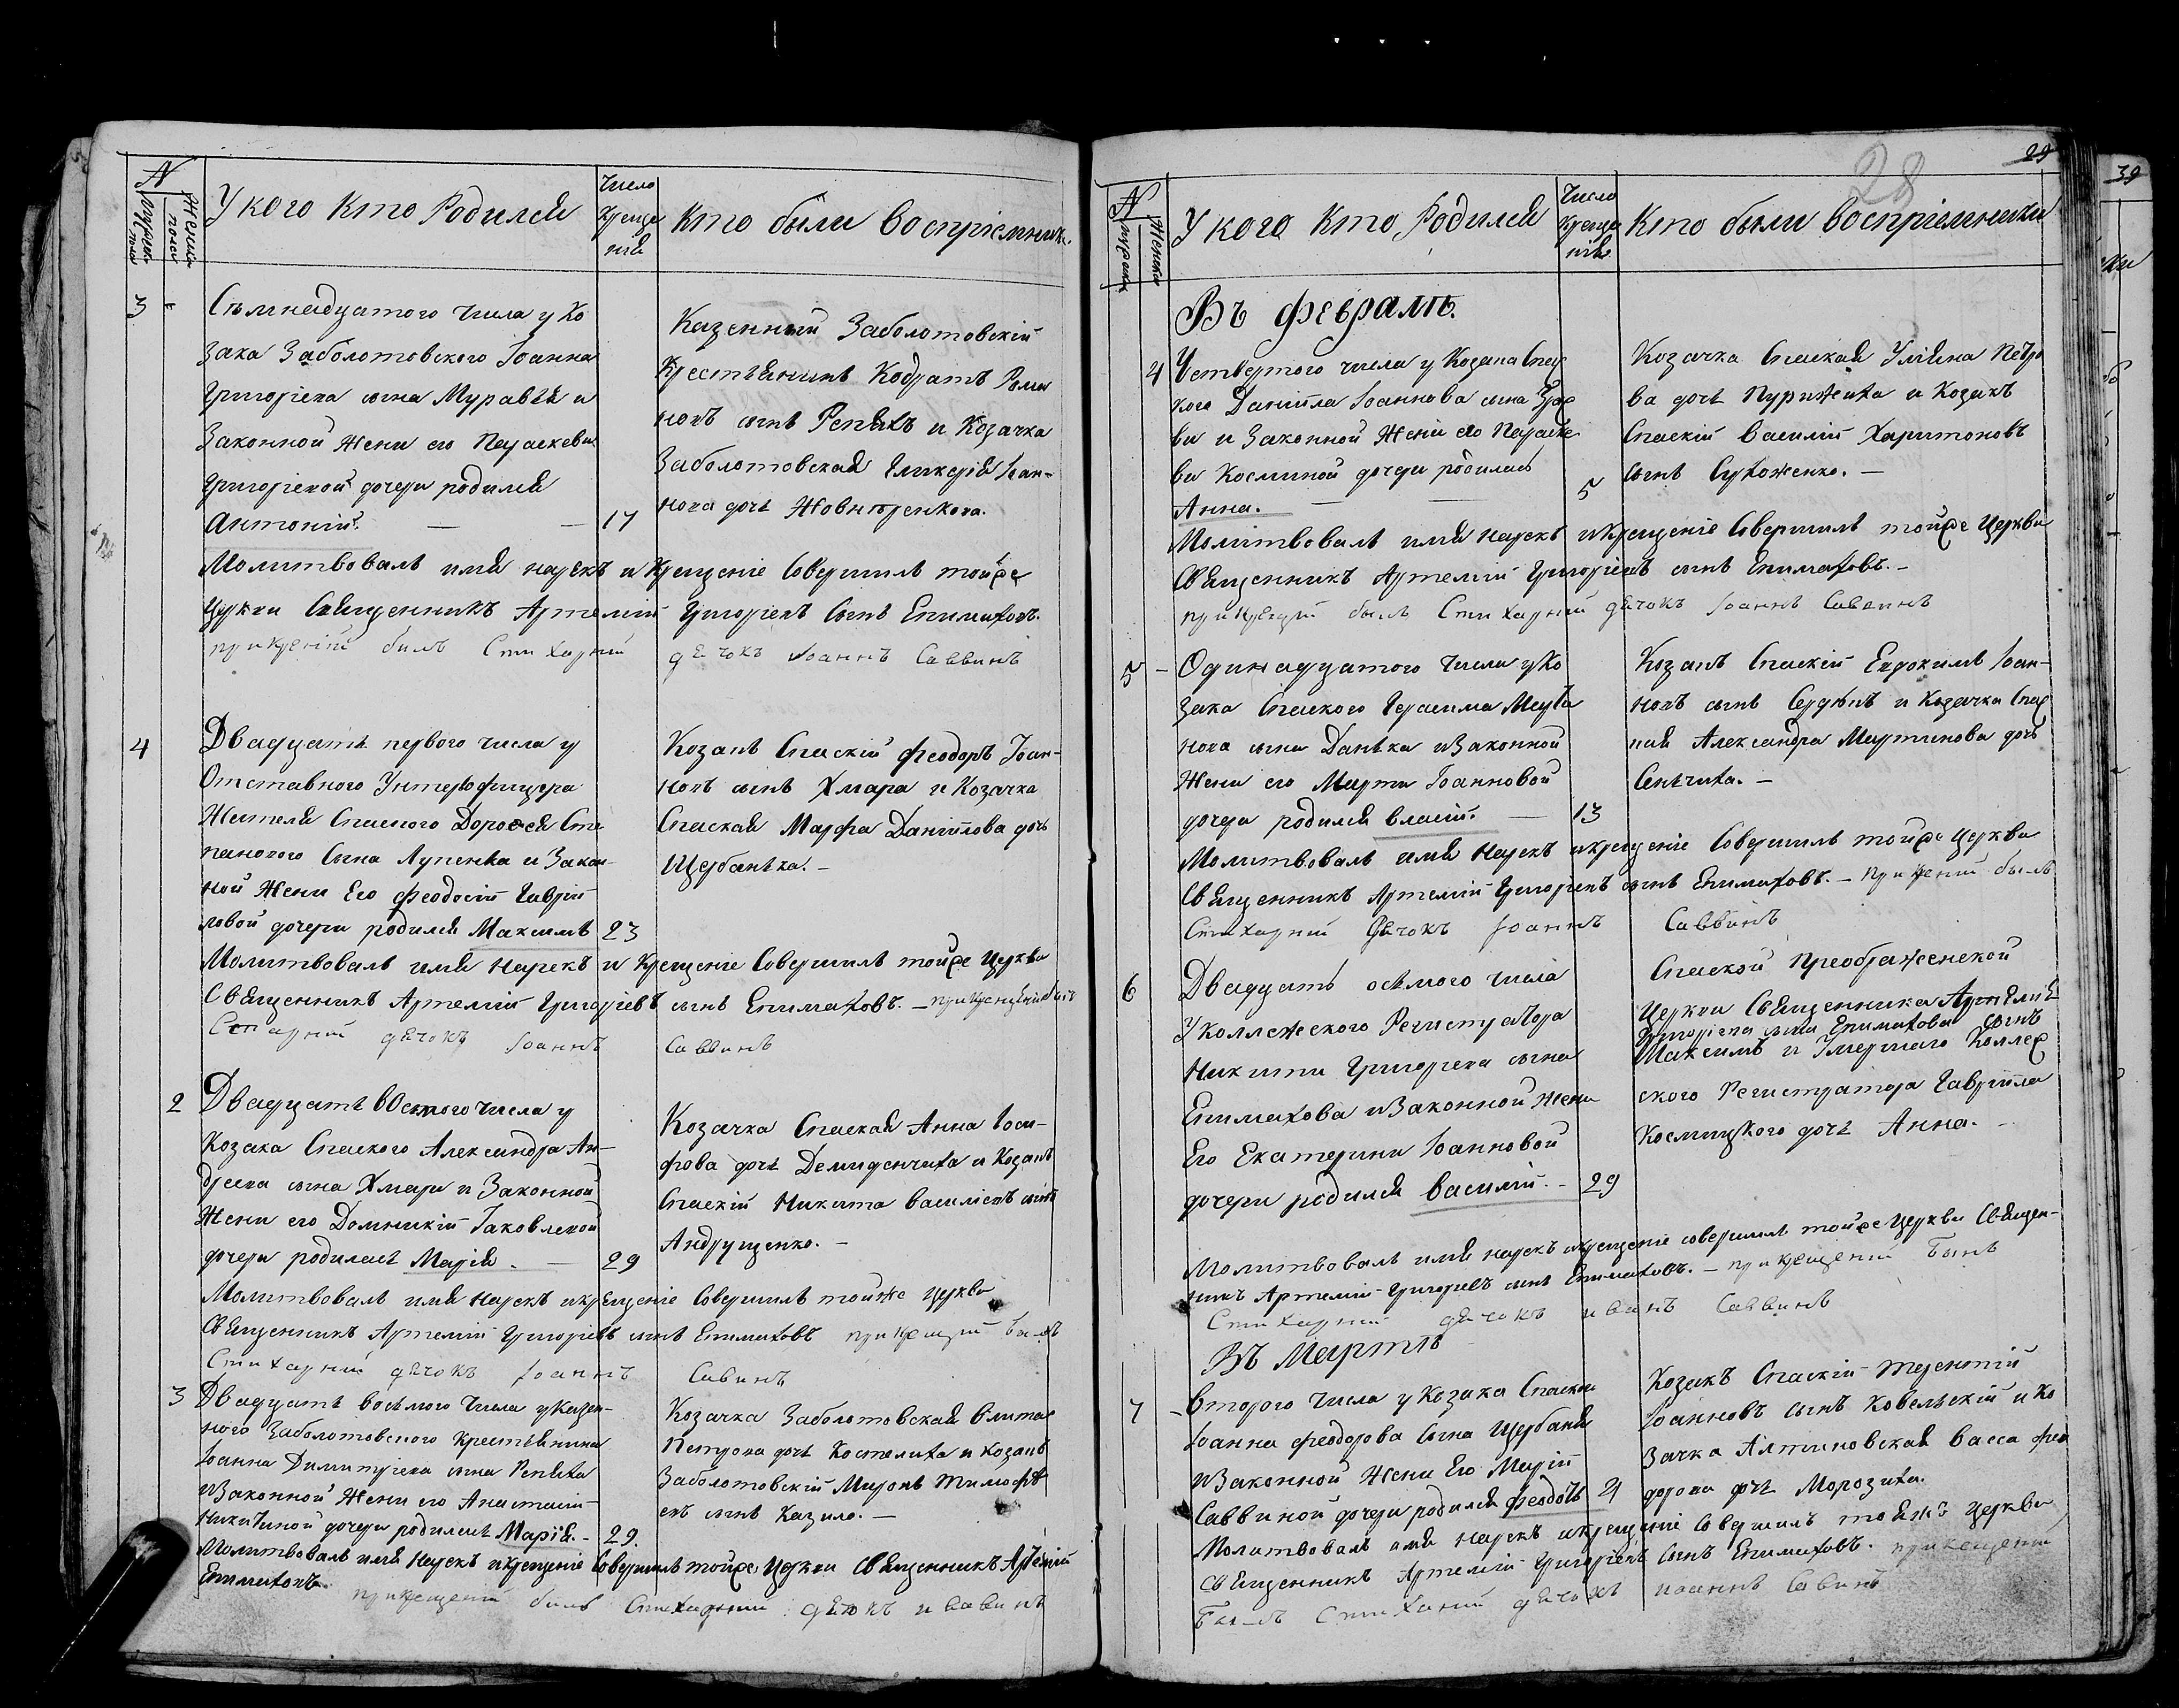 N
Мужска пола
Женска полов
У кого кто Родился
Число Креще нія
Кто были воспріемники.
3
Съмнадцатого числа у Ко
зака Заболотовского Іоанна
Григоріева сына Муравья и
Законной жени его Параскеви
Григоріевой дочери родился
Антоній. — — 17
Казенный Заболотовскій
Крестьянинъ Кодратъ Рома
новъ сынъ Репяхъ и Козачка
Заболотовская Гликерія Іоан-
нова дочь
Молитвовалъ имя нарекъ и Крещеніе Совершилъ тойже
Церкви Священникъ Артемій Григоріевъ Сынъ Епимаховъ.
билъ Стихарній дячокъ Іоаннъ Саввинъ
4
Двадцать первого числа у
Отставного Унтерофицера
Жителя Спаского Дорофея Сте
панового Сына Лупенка и Закон
ной Жени Его Феодосіи Гаврій
ловой дочери родился Максимъ 23
Козакъ Спаскій Феодоръ Іоан-
новъ сынъ Хмара и Козачка
Спаская Марфа Даніилова дочь
Щербанька. —
Молитвовалъ имя Нарекъ и Крещеніе Совершилъ тойже Церкви
Священникъ Артемій Григоріевъ сынъ Епимаховъ. —
дячокъ Іоаннъ Саввинъ
2
Двадцать восмого числа у
Козака Спаского Александра Ан-
дреева сына Хмари и Законной
Жени его Домникіи Іаковлевой
дочери родилась Марія. — 29
Козачка Спаская Анна Іоси-
фова дочь Демиденчиха и Козакъ
Спаскій Никита Василіевъ сынъ
Андрущенко. —
Молитвовалъ имя Нарекъ и крещеніе Совершилъ тойже Церкви
Священникъ Артемій Григоріевъ сынъ Епимаховъ
Стихарній дячокъ Іоаннъ Савинъ
3
Двадцать восьмого Числа у Казен-
ного Заболотовского Крестьянина
Іоанна Димитріева сына Репяха
и Законной Жени его Анастасіи
Никитиной дочери родилась Марія. — 29.
Козачка Заболотовская
Петрова дочь Костелиха и Козакъ
Заболотовскій Миронъ Тимофѣ
евъ сынъ Кагило. —
Молитвовалъ имя Нарекъ и крещеніе Совершилъ тойже Церкви Священникъ Артемій
Епимаховъ.
билъ Стихарний дячокъ
28
29
39
N
Мужска
Женска
У кого кто Родился
Число Креще нія
Кто были воспріемники
Въ Февралѣ.
4
Четвертого числа у Козака Спас
кого Даніила Іоаннова сына
ви и Законной Жени его Параске
ви Косминой дочери родилась
Анна. — — 5
Козачка Спаская Уліяна Петро
ва дочь Пурижиха и Козакъ
Спаскій Василій Харитоновъ
сынъ Сухоженко. —
Молитвовалъ имя нарекъ и Крещеніе Совершилъ тойже Церкви
Священникъ Артемій Григоріевъ сынъ Епимаховъ. —
былъ Стихарній дячокъ Іоаннъ Саввинъ
5 —
Одинадцатого Числа у Ко
зака Спаского Герасима
нова сына Данька и Законной
Жени его Марти Іоанновой
дочери родился Власій. — 13
Козакъ Спаскій Евдокимъ Іоан-
новъ сынъ Сердюкъ и Козачка Спас
кая Александра Мартинова дочь
Сенчиха. —
Молитвовалъ имя Нарекъ и крещеніе Совершилъ тойже Церкви
Священникъ Артемій Григоріевъ сынъ Епимаховъ. — былъ
Стихарній Дячокъ Іоаннъ Саввинъ
6
Двадцать осьмого числа
У коллежского Регистратора
Никити Григорева сына
Епимахова и Законной Жени
Его Екатерини Іоанновой
дочери родился Василій. — 29
Спаской Преображенской
Церкви Священника Артемія
Григоріева сына Епимахова сынъ
Максимъ и Умершаго Коллеж
ского Регистратора Гавріила
Космицкого дочь Анна. —
Молитвовалъ имя нарекъ и крещеніе совершилъ тойже Церкви Священ-
никъ Артемій Григориевъ сынъ Епимаховъ. —
Стихарний дячокъ иванъ Саввинъ
Въ Мартѣ
7 —
Второго Числа у Козака Спаско
Іоанна Феодорова Сына Щербаня
и Законной Жени Его Маріи
Саввиной дочери родился Феодотъ 4
Козакъ Спаскій Терентій
Іоанновъ сынъ Ковельскій и Ко
зачка Алтиновская Васса Фео
дорова дочь Морозиха.
Молитвовалъ имя Нарекъ и крещеніе Совершилъ тойже Церкви
Священникъ Артемій Григоріевъ Сынъ Епимаховъ.
дячокъ иоаннъ Савинъ